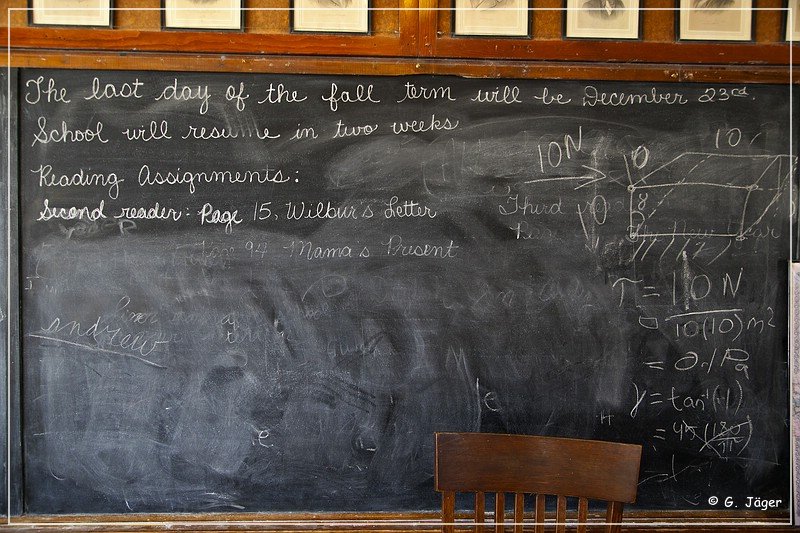 The last day of the fall term will be December 23rd.
School will resume in two weeks
Reading Assignments:
Second reader: Page 15, Wilbur's Letter
Third
Page 94 Mama's Present
New Year
andrew
e
e
10N
10
10
10
8
τ = 10 N
10(10)m²
= 0.1 Pa
γ = tan⁻¹(.1)
= 45 (180/π)
© G. Jäger